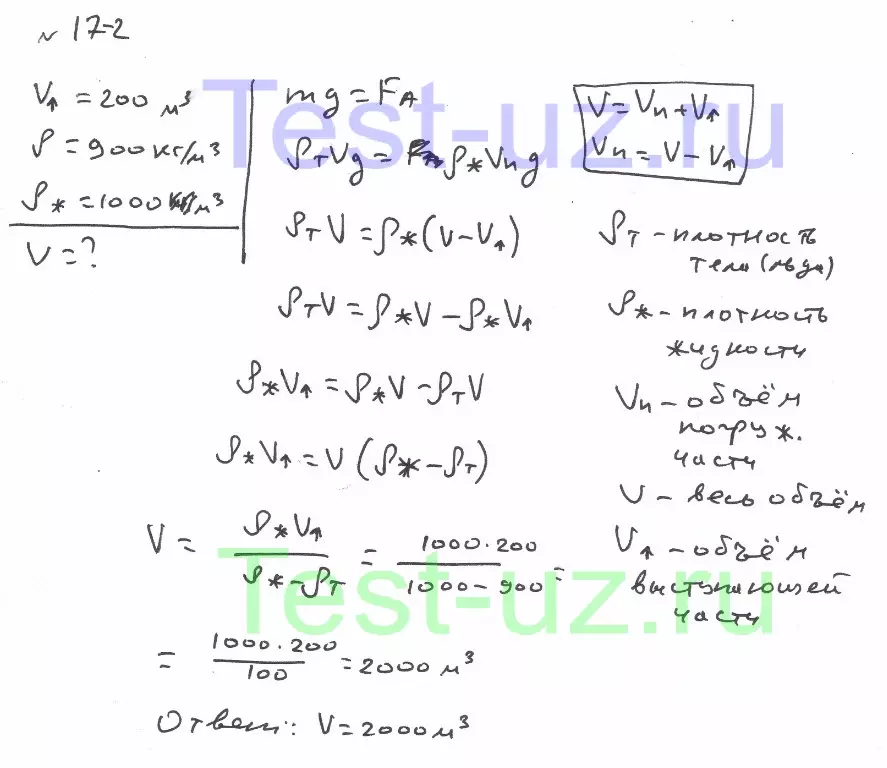 № 17-2
V↑ = 200 м³
ρ = 900 кг/м³
ρж = 1000 кг/м³
V = ?
mg = FA
ρт V g = ρж Vп g
ρт V = ρж (V – V↑)
ρт V = ρж V – ρж V↑
ρж V↑ = ρж V – ρт V
ρж V↑ = V (ρж – ρт)
V = ρж V↑ / (ρж – ρт) = 1000 · 200 / (1000 – 900) =
= 1000 · 200 / 100 = 2000 м³
Ответ: V = 2000 м³
V = Vп + V↑
Vп = V – V↑
ρт – плотность
тела (льда)
ρж – плотность
жидкости
Vп – объём
погруж.
части
V – весь объём
V↑ – объём
выступающей
части
Test-uz.ru
Test-uz.ru